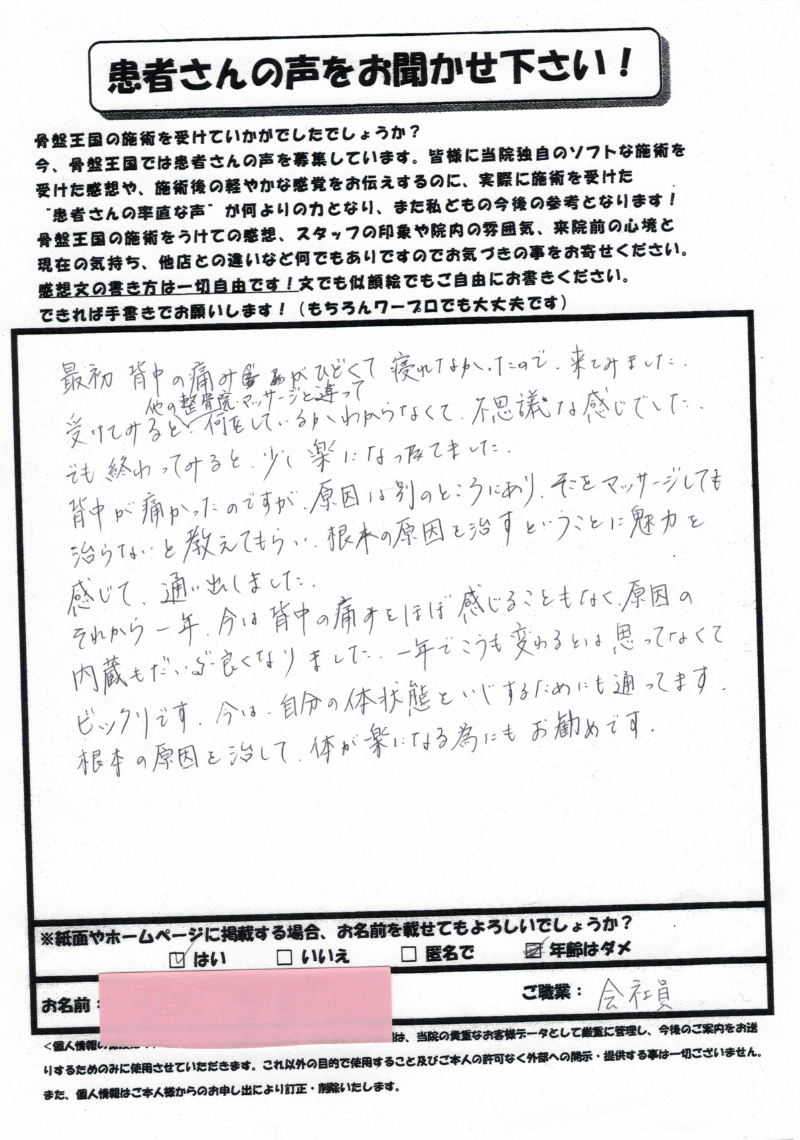 患者さんの声をお聞かせ下さい！
骨盤王国の施術を受けていかがでしたでしょうか？
今、骨盤王国では患者さんの声を募集しています。皆様に当院独自のソフトな施術を
受けた感想や、施術後の軽やかな感覚をお伝えするのに、実際に施術を受けた
“患者さんの率直な声”が何よりの力となり、また私どもの今後の参考となります！
骨盤王国の施術をうけての感想、スタッフの印象や院内の雰囲気、来院前の心境と
現在の気持ち、他店との違いなど何でもありですのでお気づきの事をお寄せください。
感想文の書き方は一切自由です！文でも似顔絵でもご自由にお書きください。
できれば手書きでお願いします！（もちろんワープロでも大丈夫です）
最初 背中の痛みがひどくて 寝れなかったので、来てみました。
他の整骨院、マッサージと違って
受けてみると、何をしているかわからなくて、不思議な感じでした。
でも 終わってみると、少し楽になってました。
背中が痛かったのですが、原因は別のところにあり、そこをマッサージしても
治らないと教えてもらい、根本の原因を治すということに魅力を
感じて、通い出しました。
それから一年、今は背中の痛みをほぼ感じることもなく、原因の
内蔵もだいぶ良くなりました。一年でこうも変わるとは思ってなくて
ビックリです。今は、自分の体状態をいじするためにも通ってます。
根本の原因を治して、体が楽になる為にもお勧めです。
※紙面やホームページに掲載する場合、お名前を載せてもよろしいでしょうか？
☑ はい □ いいえ □ 匿名で ☑ 年齢はダメ
お名前： ご職業： 会社員
<個人情報の は、当院の貴重なお客様データとして厳重に管理し、今後のご案内をお送
りするためのみに使用させていただきます。これ以外の目的で使用すること及びご本人の許可なく外部への開示・提供する事は一切ございません。
また、個人情報はご本人様からのお申し出により訂正・削除いたします。